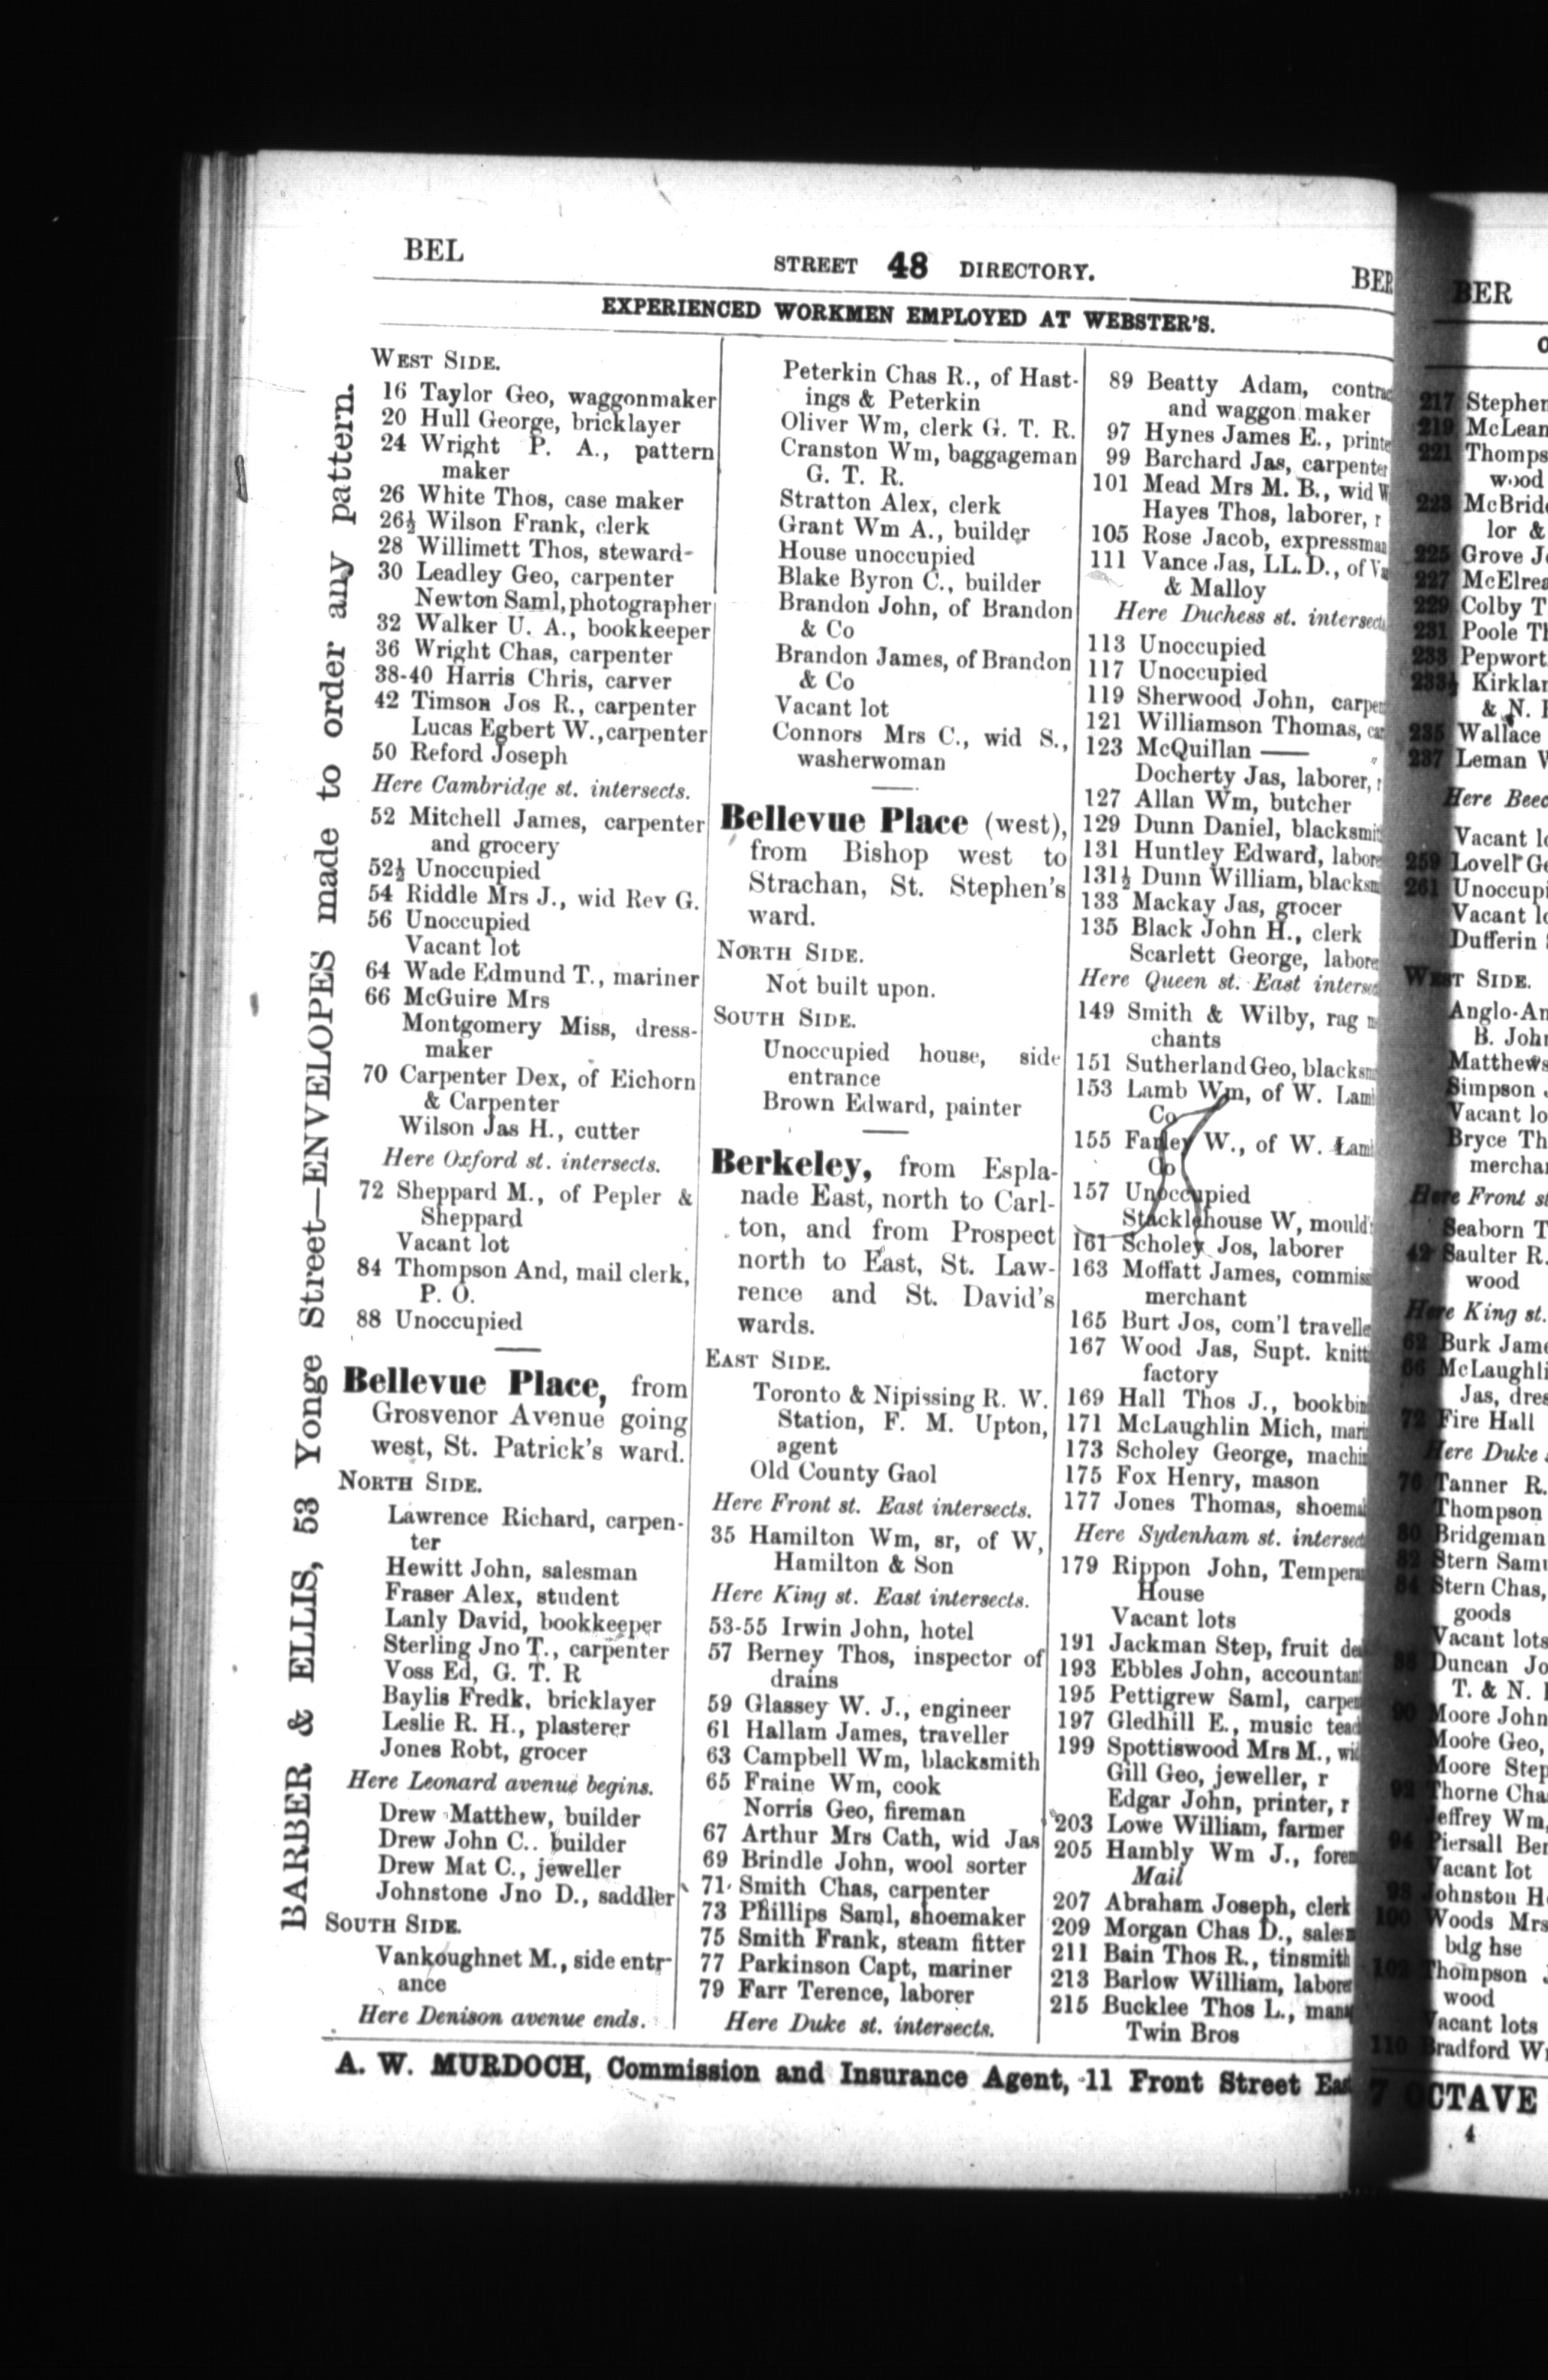 BEL
STREET 48 DIRECTORY.
BER
EXPERIENCED WORKMEN EMPLOYED AT WEBSTER'S.
BARBER & ELLIS, 53 Yonge Street—ENVELOPES made to order any pattern.
WEST SIDE.
16 Taylor Geo, waggonmaker
20 Hull George, bricklayer
24 Wright P. A., pattern
maker
26 White Thos, case maker
26½ Wilson Frank, clerk
28 Willimett Thos, steward
30 Leadley Geo, carpenter
Newton Saml, photographer
32 Walker U. A., bookkeeper
36 Wright Chas, carpenter
38-40 Harris Chris, carver
42 Timson Jos R., carpenter
Lucas Egbert W., carpenter
50 Reford Joseph
Here Cambridge st. intersects.
52 Mitchell James, carpenter
and grocery
52½ Unoccupied
54 Riddle Mrs J., wid Rev G.
56 Unoccupied
Vacant lot
64 Wade Edmund T., mariner
66 McGuire Mrs
Montgomery Miss, dress-
maker
70 Carpenter Dex, of Eichorn
& Carpenter
Wilson Jas H., cutter
Here Oxford st. intersects.
72 Sheppard M., of Pepler &
Sheppard
Vacant lot
84 Thompson And, mail clerk,
P. O.
88 Unoccupied
Bellevue Place, from
Grosvenor Avenue going
west, St. Patrick's ward.
NORTH SIDE.
Lawrence Richard, carpen-
ter
Hewitt John, salesman
Fraser Alex, student
Lanly David, bookkeeper
Sterling Jno T., carpenter
Voss Ed, G. T. R
Baylis Fredk, bricklayer
Leslie R. H., plasterer
Jones Robt, grocer
Here Leonard avenue begins.
Drew Matthew, builder
Drew John C.. builder
Drew Mat C., jeweller
Johnstone Jno D., saddler
SOUTH SIDE.
Vankoughnet M., side entr-
ance
Here Denison avenue ends.
Peterkin Chas R., of Hast-
ings & Peterkin
Oliver Wm, clerk G. T. R.
Cranston Wm, baggageman
G. T. R.
Stratton Alex, clerk
Grant Wm A., builder
House unoccupied
Blake Byron C., builder
Brandon John, of Brandon
& Co
Brandon James, of Brandon
& Co
Vacant lot
Connors Mrs C., wid S.,
washerwoman
Bellevue Place (west),
from Bishop west to
Strachan, St. Stephen's
ward.
NORTH SIDE.
Not built upon.
SOUTH SIDE.
Unoccupied house, side
entrance
Brown Edward, painter
Berkeley, from Espla-
nade East, north to Carl-
ton, and from Prospect
north to East, St. Law-
rence and St. David's
wards.
EAST SIDE.
Toronto & Nipissing R. W.
Station, F. M. Upton,
agent
Old County Gaol
Here Front st. East intersects.
35 Hamilton Wm, sr, of W,
Hamilton & Son
Here King st. East intersects.
53-55 Irwin John, hotel
57 Berney Thos, inspector of
drains
59 Glassey W. J., engineer
61 Hallam James, traveller
63 Campbell Wm, blacksmith
65 Fraine Wm, cook
Norris Geo, fireman
67 Arthur Mrs Cath, wid Jas
69 Brindle John, wool sorter
71 Smith Chas, carpenter
73 Phillips Saml, shoemaker
75 Smith Frank, steam fitter
77 Parkinson Capt, mariner
79 Farr Terence, laborer
Here Duke st. intersects.
89 Beatty Adam, contrac
and waggon maker
97 Hynes James E., printe
99 Barchard Jas, carpenter
101 Mead Mrs M. B., wid W
Hayes Thos, laborer, r
105 Rose Jacob, expressman
111 Vance Jas, LL.D., of Va
& Malloy
Here Duchess st. intersects
113 Unoccupied
117 Unoccupied
119 Sherwood John, carpen
121 Williamson Thomas, car
123 McQuillan ——
Docherty Jas, laborer, r
127 Allan Wm, butcher
129 Dunn Daniel, blacksmit
131 Huntley Edward, labore
131½ Dunn William, blacksm
133 Mackay Jas, grocer
135 Black John H., clerk
Scarlett George, labore
Here Queen st. East intersec
149 Smith & Wilby, rag m
chants
151 Sutherland Geo, blacksm
153 Lamb Wm, of W. Lamb
Co
155 Farley W., of W. Lamb
Co
157 Unoccupied
Stacklehouse W, mould
161 Scholey Jos, laborer
163 Moffatt James, commiss
merchant
165 Burt Jos, com'l travelle
167 Wood Jas, Supt. knitt
factory
169 Hall Thos J., bookbin
171 McLaughlin Mich, mari
173 Scholey George, machin
175 Fox Henry, mason
177 Jones Thomas, shoema
Here Sydenham st. intersect
179 Rippon John, Tempera
House
Vacant lots
191 Jackman Step, fruit dea
193 Ebbles John, accountan
195 Pettigrew Saml, carpen
197 Gledhill E., music teac
199 Spottiswood Mrs M., wid
Gill Geo, jeweller, r
Edgar John, printer, r
203 Lowe William, farmer
205 Hambly Wm J., forem
Mail
207 Abraham Joseph, clerk
209 Morgan Chas D., salesm
211 Bain Thos R., tinsmith
213 Barlow William, laborer
215 Bucklee Thos L., mana
Twin Bros
A. W. MURDOCH, Commission and Insurance Agent, 11 Front Street East
BER
217 Stephen
219 McLean
221 Thomps
wood
223 McBride
lor &
225 Grove J
227 McElrea
229 Colby T
231 Poole Th
233 Pepwort
233½ Kirklan
& N. R
235 Wallace
237 Leman W
Here Beec
Vacant lo
259 Lovell Ge
261 Unoccupi
Vacant lo
Dufferin
WEST SIDE.
Anglo-Am
B. John
Matthews
Simpson J
Vacant lo
Bryce Th
merchan
Here Front st
Seaborn T
42 Saulter R.
wood
Here King st.
62 Burk Jame
66 McLaughli
Jas, dres
72 Fire Hall
Here Duke
76 Tanner R.
Thompson
80 Bridgeman
82 Stern Samu
84 Stern Chas,
goods
Vacant lots
88 Duncan Jo
T. & N. R
90 Moore John
Moore Geo,
Moore Step
92 Thorne Cha
Jeffrey Wm,
94 Piersall Ber
Vacant lot
98 Johnston H
100 Woods Mrs
bdg hse
102 Thompson J
wood
Vacant lots
110 Bradford Wm
7 OCTAVE
4